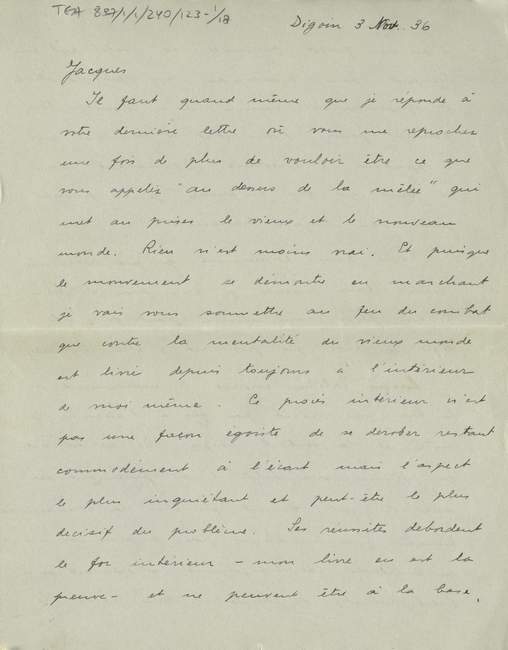 TGA 897/1/1/240/123-1/18
Digoin 3 Nov. 36
Jacques
Il faut quand même que je réponde à
votre dernière lettre où vous me reprochez
une fois de plus de vouloir être ce que
vous appelez "au dessus de la mêlée" qui
met au prises le vieux et le nouveau
monde. Rien n'est moins vrai. Et puisque
le mouvement se démontre en marchant
je vais vous soumettre au feu du combat
que contre la mentalité du vieux monde
est livré depuis toujours à l'intérieur
de moi même. Ce procès intérieur n'est
pas une façon égoiste de se derober restant
commodément à l'écart mais l'aspect
le plus inquiétant et peut-être le plus
decisif du problème. Ses reussites debordent
le for intérieur – mon livre en est la
preuve – et ne peuvent être à la base,